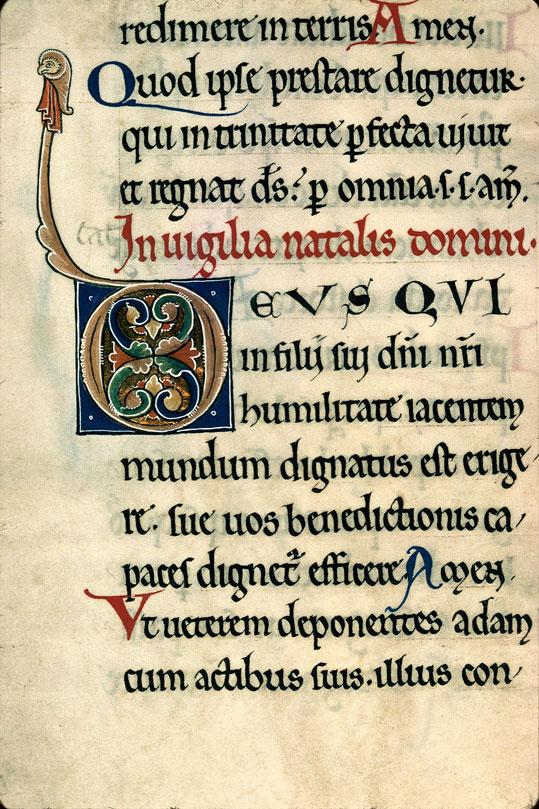 redimere in terris Amen.
Quod ipse prestare dignetur.
qui in trinitate ꝑfecta uiuit
et regnat d̅s. ꝑ omnia.s.s.am̅.
In uigilia natalis domini.
DEUS QVI
in filij sui dn̅i nr̅i
humilitate iacentem
mundum dignatus est erige-
re. sue uos benedictionis ca-
paces dignet᷑ efficere. Amen.
Ut ueterem deponentes adam
cum actibus suis. illius con-